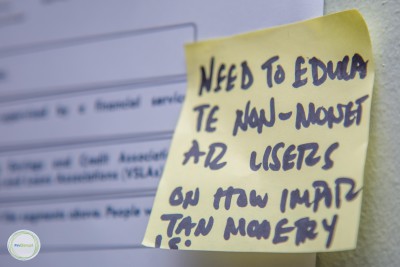 NEED TO EDUCA
TE NON-MONET
AR USERS
ON HOW IMPOR
TAN MONETRY
IS:
supervised by a financial service
Savings and Credit Associatio
and Loans Associations (VSLAs)
the segments above. People w